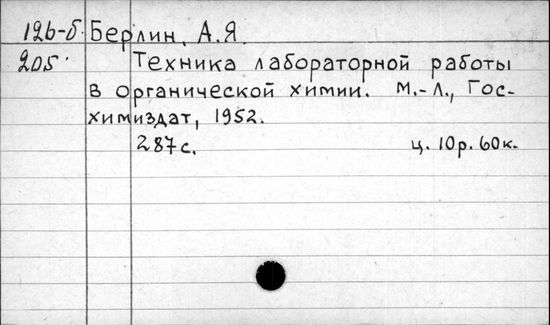 126-б Берлин, А.Я.
205. Техника лабораторной работы
в органической химии. М.-Л., Гос-
химиздат, 1952.
287с. ц. 10р. 60к.